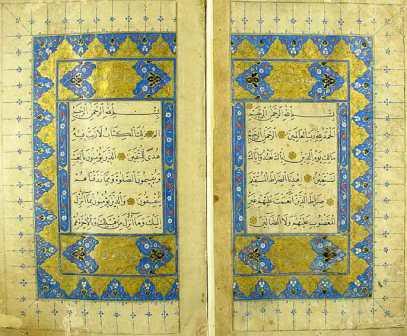 بسم الله الرحمن الرحيم
الحمد لله رب العالمين الرحمن الرحيم
مالك يوم الدين اياك نعبد واياك
نستعين اهدنا الصراط المستقيم
صراط الذين انعمت عليهم غير
المغضوب عليهم ولا الضالين
بسم الله الرحمن الرحيم
الم ذلك الكتاب لا ريب فيه
هدى للمتقين الذين يؤمنون بالغيب
ويقيمون الصلوة ومما رزقناهم
ينفقون والذين يؤمنون بما انزل
اليك وما انزل من قبلك وبالاخرة هم